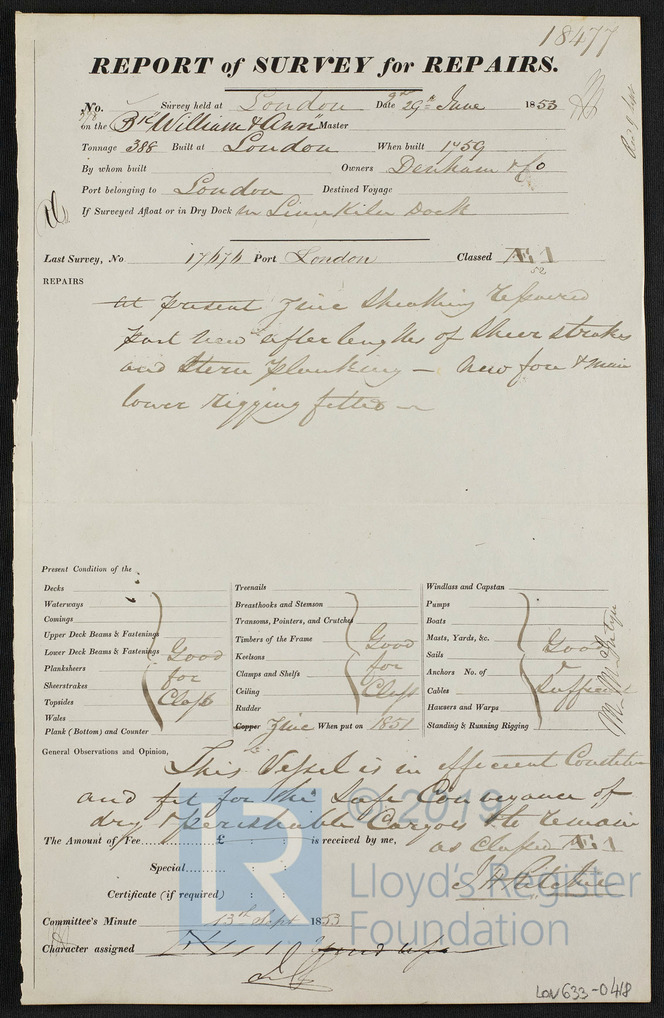 18477
REPORT of SURVEY for REPAIRS.
No. Survey held at London Date 29th June 1853
on the Bk "William & Ann" Master
Tonnage 388 Built at London When built 1759
By whom built Owners Denham & Co
Port belonging to London Destined Voyage
If Surveyed Afloat or in Dry Dock in Limekiln Dock
Last Survey, No 17676 Port London Classed Æ1
52
REPAIRS
at present Zinc Sheathing repaired
part new after lengths of Sheer strakes
and Stern planking — New fore & main
lower rigging fitted
Present Condition of the
Decks
Waterways
Comings
Upper Deck Beams & Fastenings
Lower Deck Beams & Fastenings
Planksheers
Sheerstrakes
Topsides
Wales
Plank (Bottom) and Counter
Good
for
Class
Treenails
Breasthooks and Stemson
Transoms, Pointers, and Crutches
Timbers of the Frame
Keelsons
Clamps and Shelfs
Ceiling
Rudder
Copper Zinc When put on 1851
Good
for
Class
Windlass and Capstan
Pumps
Boats
Masts, Yards, &c.
Sails
Anchors No. of
Cables
Hausers and Warps
Standing & Running Rigging
Good
&
Sufficient
General Observations and Opinion,
This Vessel is in efficient Condition
and fit for the safe Conveyance of
dry & perishable Cargoes & to remain
as Classed Æ1
The Amount of Fee £ : : is received by me,
Special : :
Certificate (if required) : :
Committee's Minute 13th Sept 1853
Character assigned
© 2019
LR
Lloyd's Register
Foundation
LON633-0418